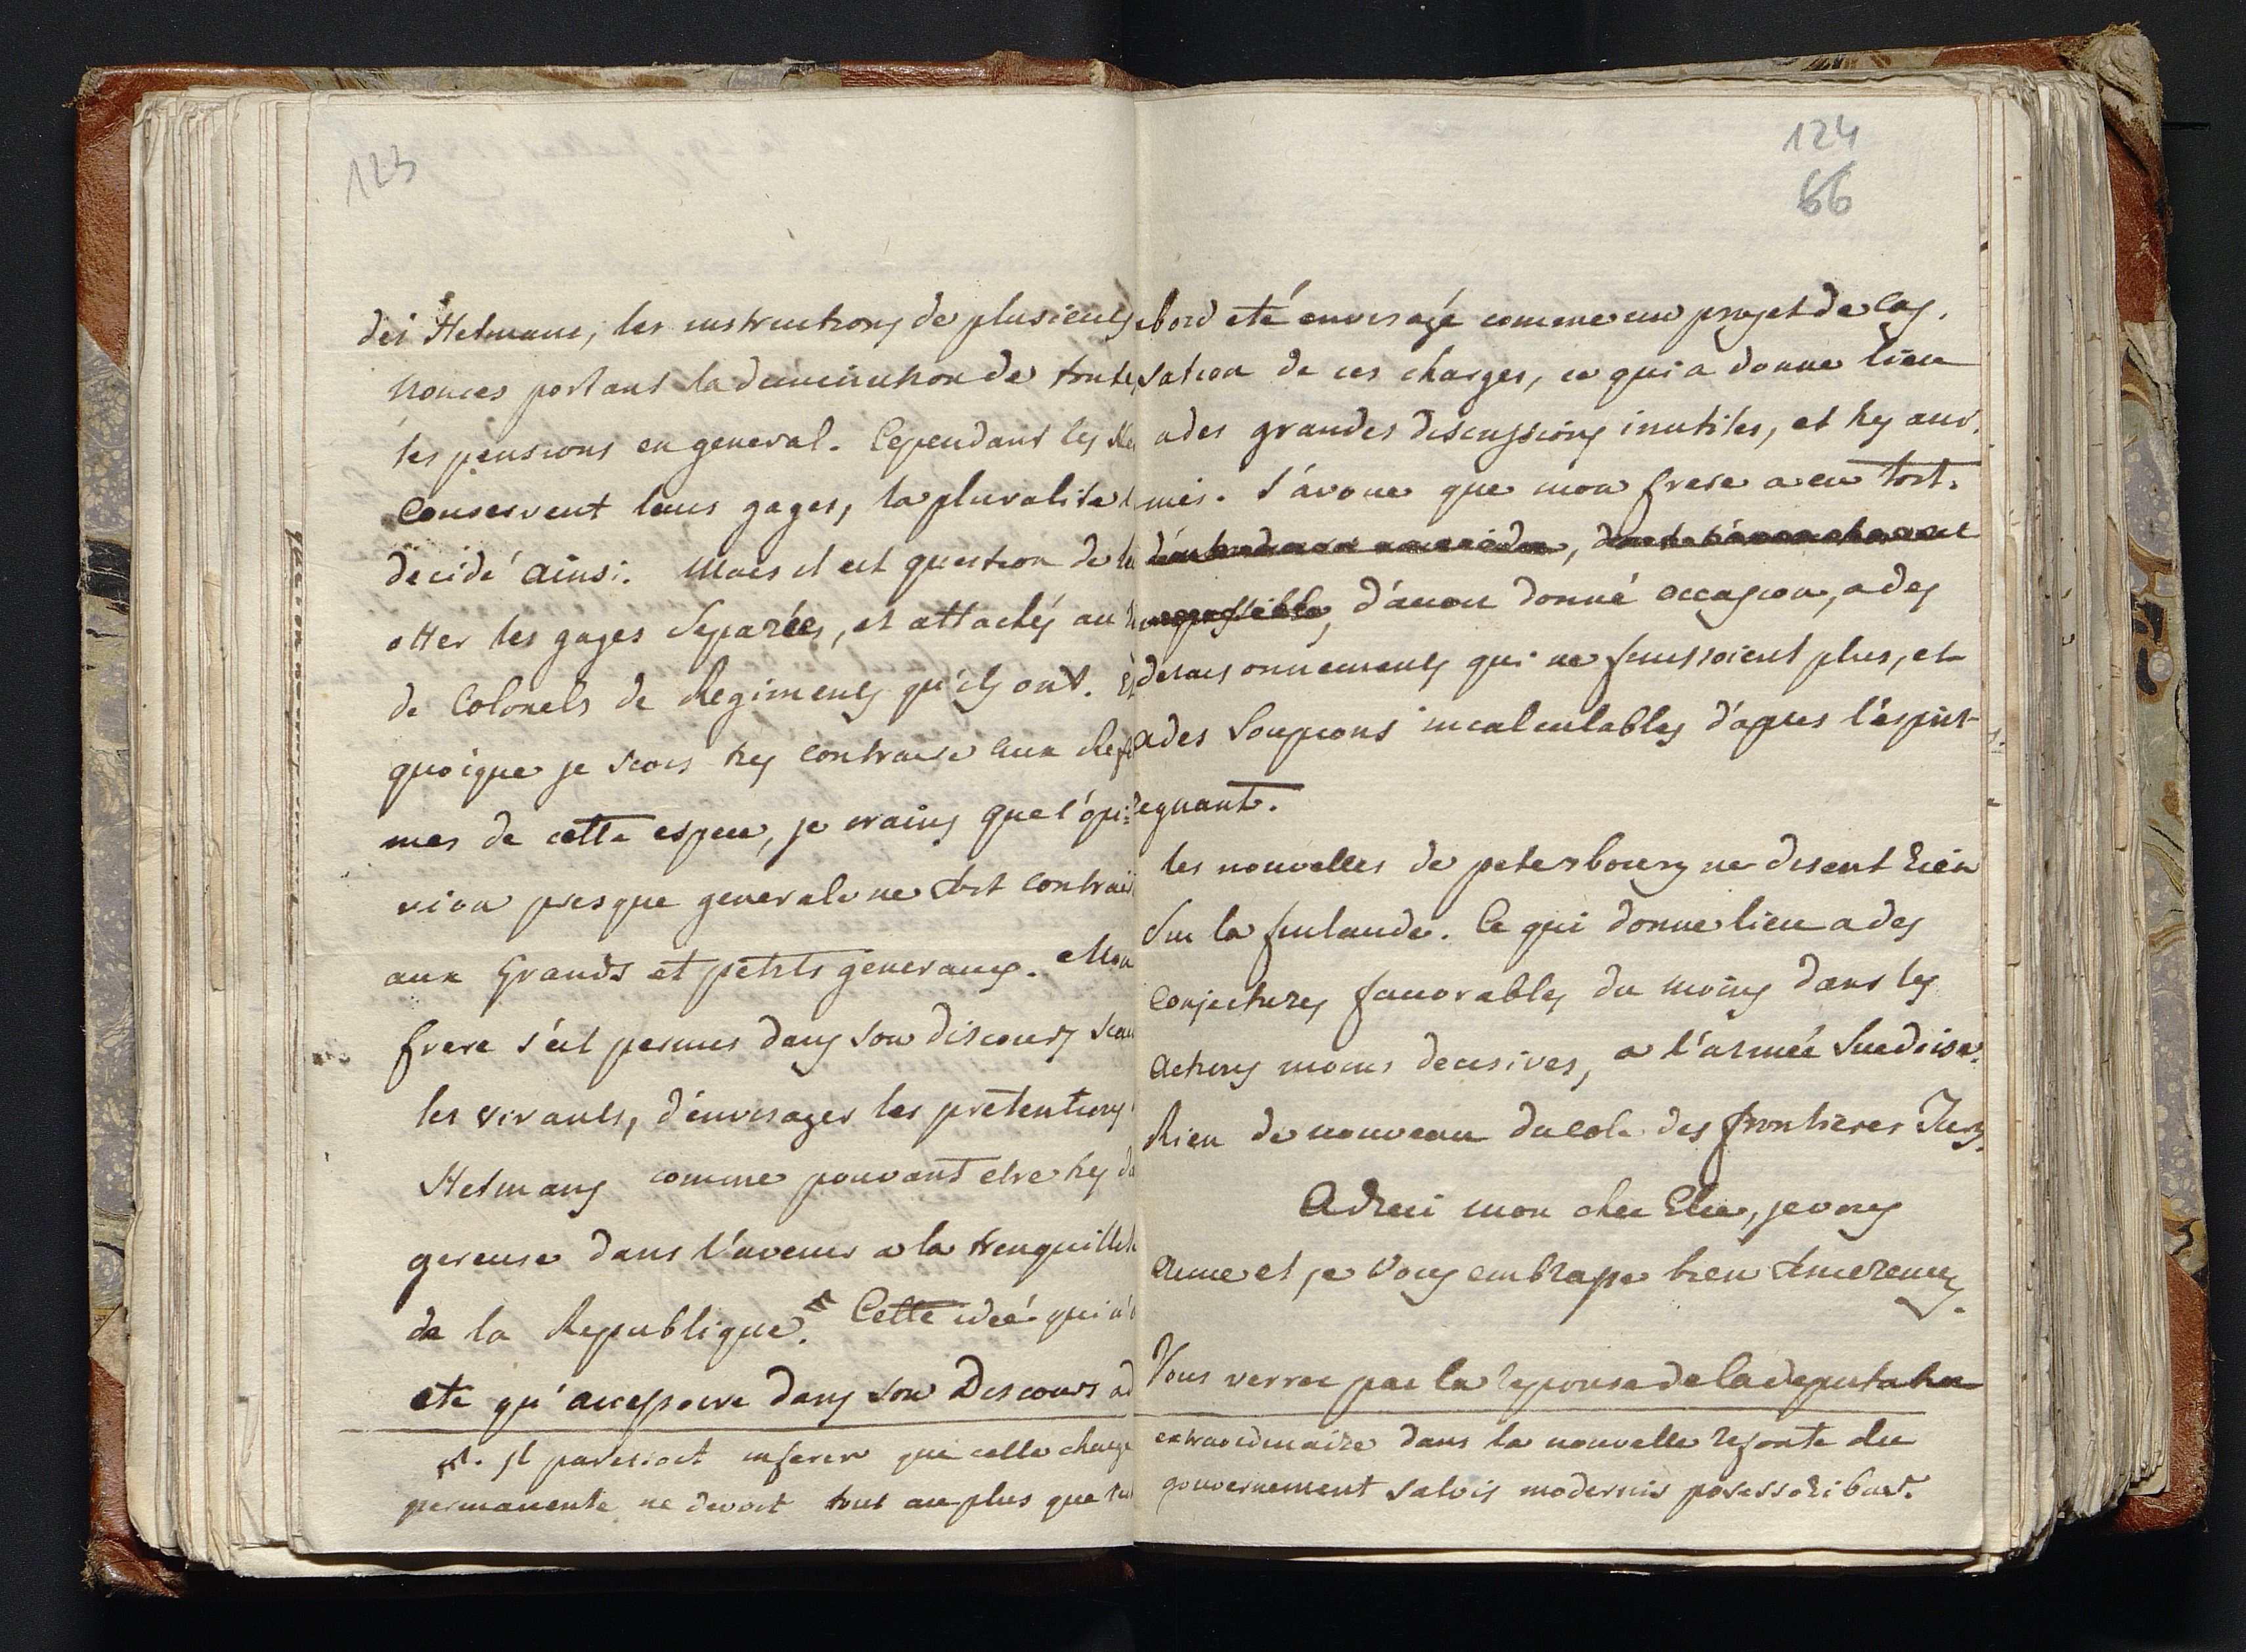 123
des Hetmans, les instructions de plusieurs
nonces portant la diminution de toutes
les pensions en general. Cependant les
conservent leurs gages, la pluralité
decidé ainsi. Mais il est question de
otter les gages separées, et attachés au
de Colonels de Regiments qu'ils ont. Et
quoique je sois tres contraire aux Refo
mes de cette espece, je crains que l'opi=
nion presque generale ne soit contrai
aux Grands et petits generaux. Mon
frere s'est permis dans son discours
les vivants, d'envisager les pretentions
Hetmans comme pouvant etre tres da
gereuse dans l'avenir a la trenquillit
de la Republique. Cette ideé qui n'a
ete qu'accessoire dans son Discours a d
il parisioit inferer que cette charge
permanente ne devoit tout au plus que
124
66
bord eté envisagé comme un projet de cas,
sation de ces charges, ce qui a donné lieu
a des grandes discussions inutiles, et tres ani.
més. J'avoue que mon frere a eu tort.
impossible, d'avoir donné occasion, a des
deraisonnements qui ne finissoient plus, et
a des soupcons incalculables d'apres l'esprit
regnant.
les nouvelles de petersbourg ne disent rien
sur la finlande. Ce qui donne lieu a des
conjectures favorables, du moins dans les
actions moins decisives, a l'armée Suedoise.
Rien de nouveau du coté des frontieres
Adieu mon cher Elie, je vous
aime et je vous embrasse bien
Vous verrez par la reponse de la deputation
extraordinaire dans la nouvelle refonte du
gouvernement salvis modernis possessoribus.